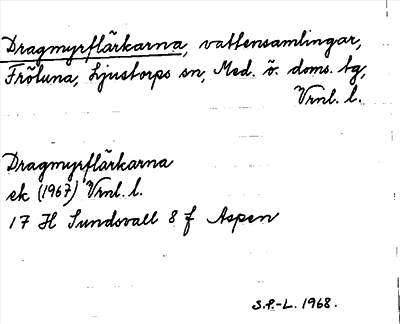 Dragmyrflärkarna, vattensamlingar,
Frötuna, Ljustorps sn, Med. ö. doms. tg,
Vrnl. l.
Dragmyrflärkarna
ek (1967) Vrnl. l.
17 H Sundsvall 8 f Aspen
S.P.-L. 1968.